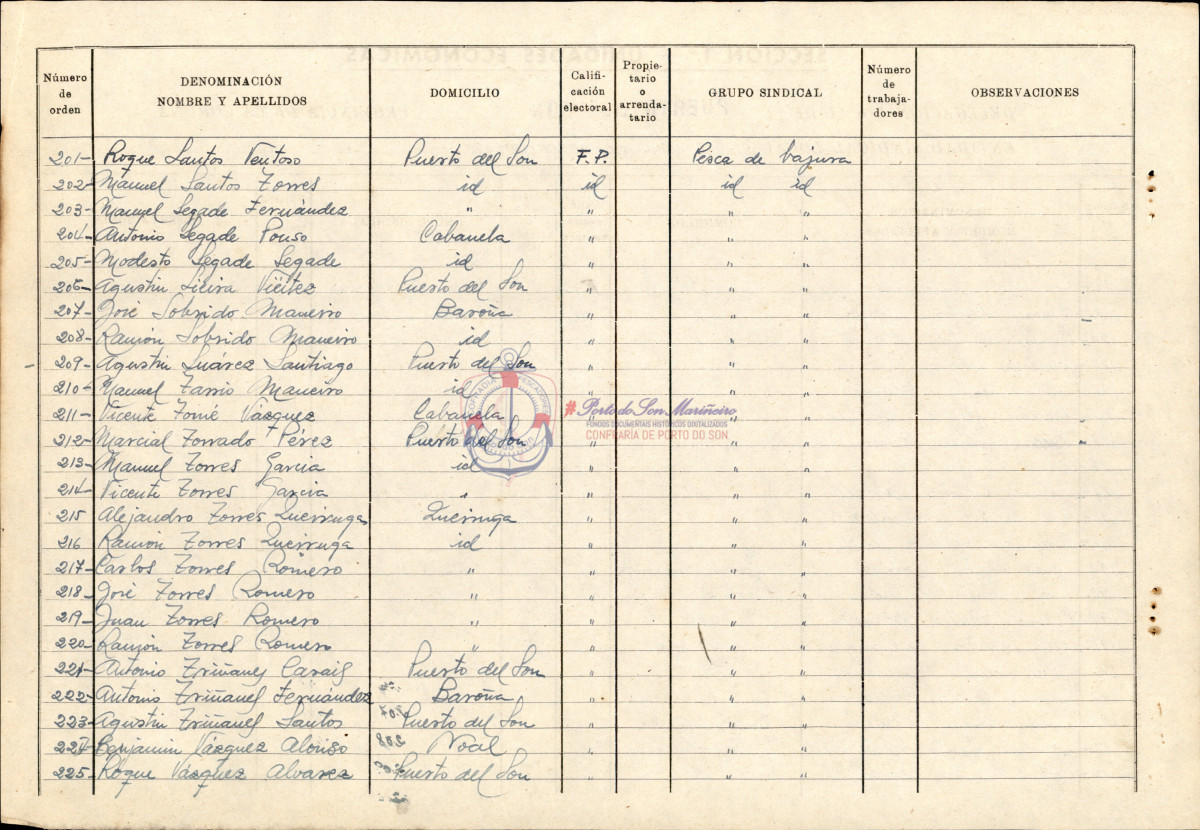 Número de orden | DENOMINACIÓN NOMBRE Y APELLIDOS | DOMICILIO | Califi-cación electoral | Propie-tario o arrenda-tario | GRUPO SINDICAL | Número de trabaja-dores | OBSERVACIONES
201- Roque Santos Ventoso Puerto del Son F.P. Pesca de bajura
202- Manuel Santos Torres id id id id
203- Manuel Segade Fernández " " " "
204- Antonio Segade Pouso Cabanela " " "
205- Modesto Segade Segade id " " "
206- Agustin Sieira Vieitez Puerto del Son " " "
207- José Sobrido Maneiro Baroña " " "
208- Ramón Sobrido Maneiro id " " "
209- Agustin Suárez Santiago Puerto del Son " " "
210- Manuel Tarrio Maneiro id " " "
211- Vicente Tomé Vázquez Cabanela " " "
212- Marcial Torrado Pérez Puerto del Son " " "
213- Manuel Torres Garcia id " " "
214- Vicente Torres Garcia " " " "
215 Alejandro Torres Queiruga Queiruga " " "
216 Ramón Torres Queiruga id " " "
217- Carlos Torres Romero " " " "
218- José Torres Romero " " " "
219- Juan Torres Romero " " " "
220- Ramón Torres Romero " " " "
221- Antonio Triñanes Puerto del Son " " "
222- Antonio Triñanes Fernández Baroña " " "
223- Agustin Triñanes Santos Puerto del Son " " "
224- Benjamin Vázquez Alonso Noal " " "
225- Roque Vázquez Alvarez Puerto del Son " " "
#Porto do Son Mariñeiro
FONDOS DOCUMENTAIS HISTÓRICOS DIXITALIZADOS
CONFRARÍA DE PORTO DO SON